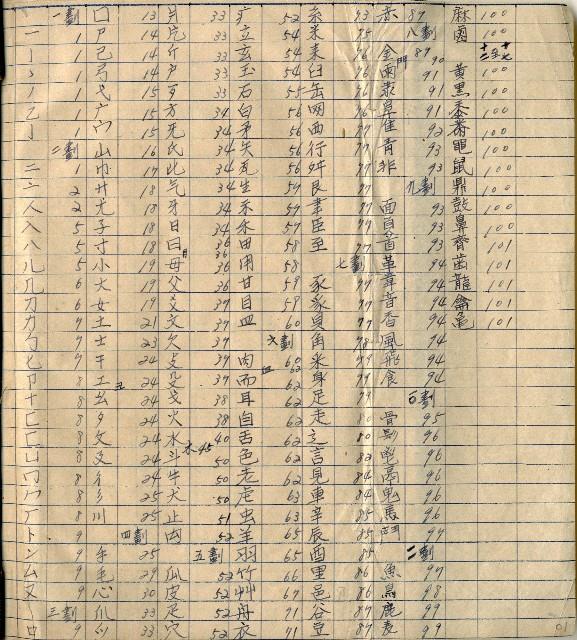 一劃
一 1
丨 1
丶 1
丿 1
乙 1
亅 1
二劃
二 1
亠 2
人 2
入 5
八 5
儿 5
几 6
刀 6
力 7
勹 7
匕 7
卩 8
十 8
匚 8
匸 8
凵 8
冂 8
冖 8
厂 8
卜 9
冫 9
厶 9
又 9
三劃
口 9
囗 13
尸 14
己 14
弓 14
弋 15
广 15
宀 15
山 16
巾 17
廾 18
尤 18
子 18
寸 18
小 19
大 19
女 19
土 21
士 23
干 24
工 24
幺 24
夕 24
夂 24
夊 24
彳 24
彡 25
川 25
四劃
手 25
毛 29
心 30
爪 33
33
爿 33
片 33
斤 33
戶 33
歹 33
方 34
无 34
氏 34
比 34
气 34
牙 34
日 34
曰 36
母 36
父 36
爻 37
文 37
欠 37
攴 37
殳 37
戈 38
火 38
水 40
斗
木 45
牛 50
犬 50
止 51
凶 52
五劃
瓜 52
皮 52
疋 52
穴 52
疒 52
立 54
玄 54
玉 54
石 55
白 56
矛 56
矢 56
瓦 56
生 57
禾 57
田 58
用 58
甘 59
目 59
皿 60
六劃
肉 60
而 62
耳 62
自 62
舌 62
色 62
老 62
虍 63
虫 63
羊 65
羽 65
竹 66
艸 67
舟 71
衣 71
糸 73
米 75
耒 76
臼 76
缶 76
网 76
西 76
行 77
舛 77
艮 77
聿 77
臣 77
至 77
七劃
豕 77
豸 77
貝 77
角 78
釆 79
身 79
足 79
走 80
辵 80
言 82
見 84
車 84
辛 85
辰 85
酉 85
里 86
邑 86
谷 87
豆 87
赤 87
八劃
金 87
門 90
雨 91
隶 91
阜 91
隹 92
青 93
非 93
九劃
面 93
首 94
革 94
韋 94
音 94
香 94
風 94
飛 94
食 94
十劃
骨 95
髟 96
鬯 96
鬲 96
鬼 96
馬 96
鬥 97
十一劃
魚 97
鳥 98
鹿 99
麥 99
麻 100
鹵 100
十二至十七
黃 100
黑 100
黍 100
黹 100
黽 100
鼠 100
鼎 100
鼓 100
鼻 100
齊 101
齒 101
龍 101
龠 101
龜 101